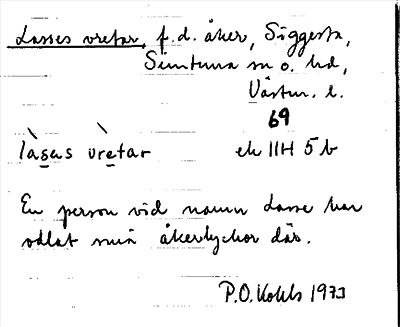 Lasses vretar, f.d. åker, Siggesta,
Simtuna sn o. hd,
Västm. l.
69
làsas vrètar ek 11H 5b
En person vid namn Lasse har
odlat små åkerlyckor där.
P.O. 1973